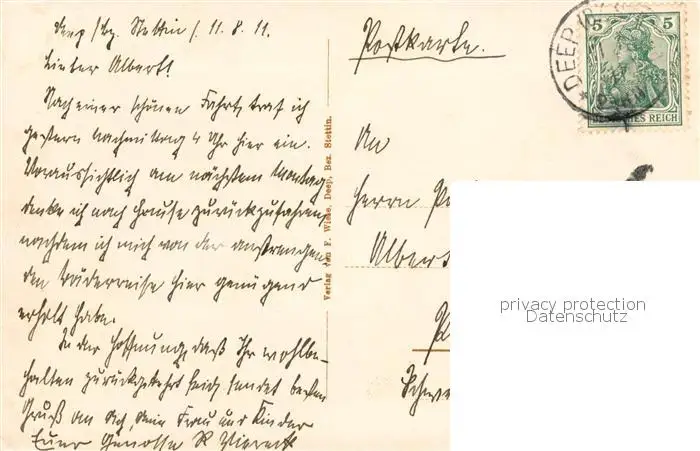 Deep /bz. Stettin /. 11. 8. 11.
Lieber Albert!
Nach einer schönen Fahrt, traf ich
gestern Nachmittag 4 Uhr hier ein.
Voraussichtlich am nächsten Montag
denke ich nach Hause zurückzufahren,
nachdem ich mich von der anstrengen
den Bäderreise hier genügend
erholt habe.
In der Hoffnung, daß Ihr wohlbe-
halten zurückgekehrt seid, sendet besten
Gruß an Dich, deine Frau und Kinder
Euer Genosse R
Verlag von F. Wiese, Deep, Bez. Stettin.
Postkarte.
An
Herrn
Albert
Schwe
5 5
DEUTSCHES REICH
DEEP
privacy protection
Datenschutz